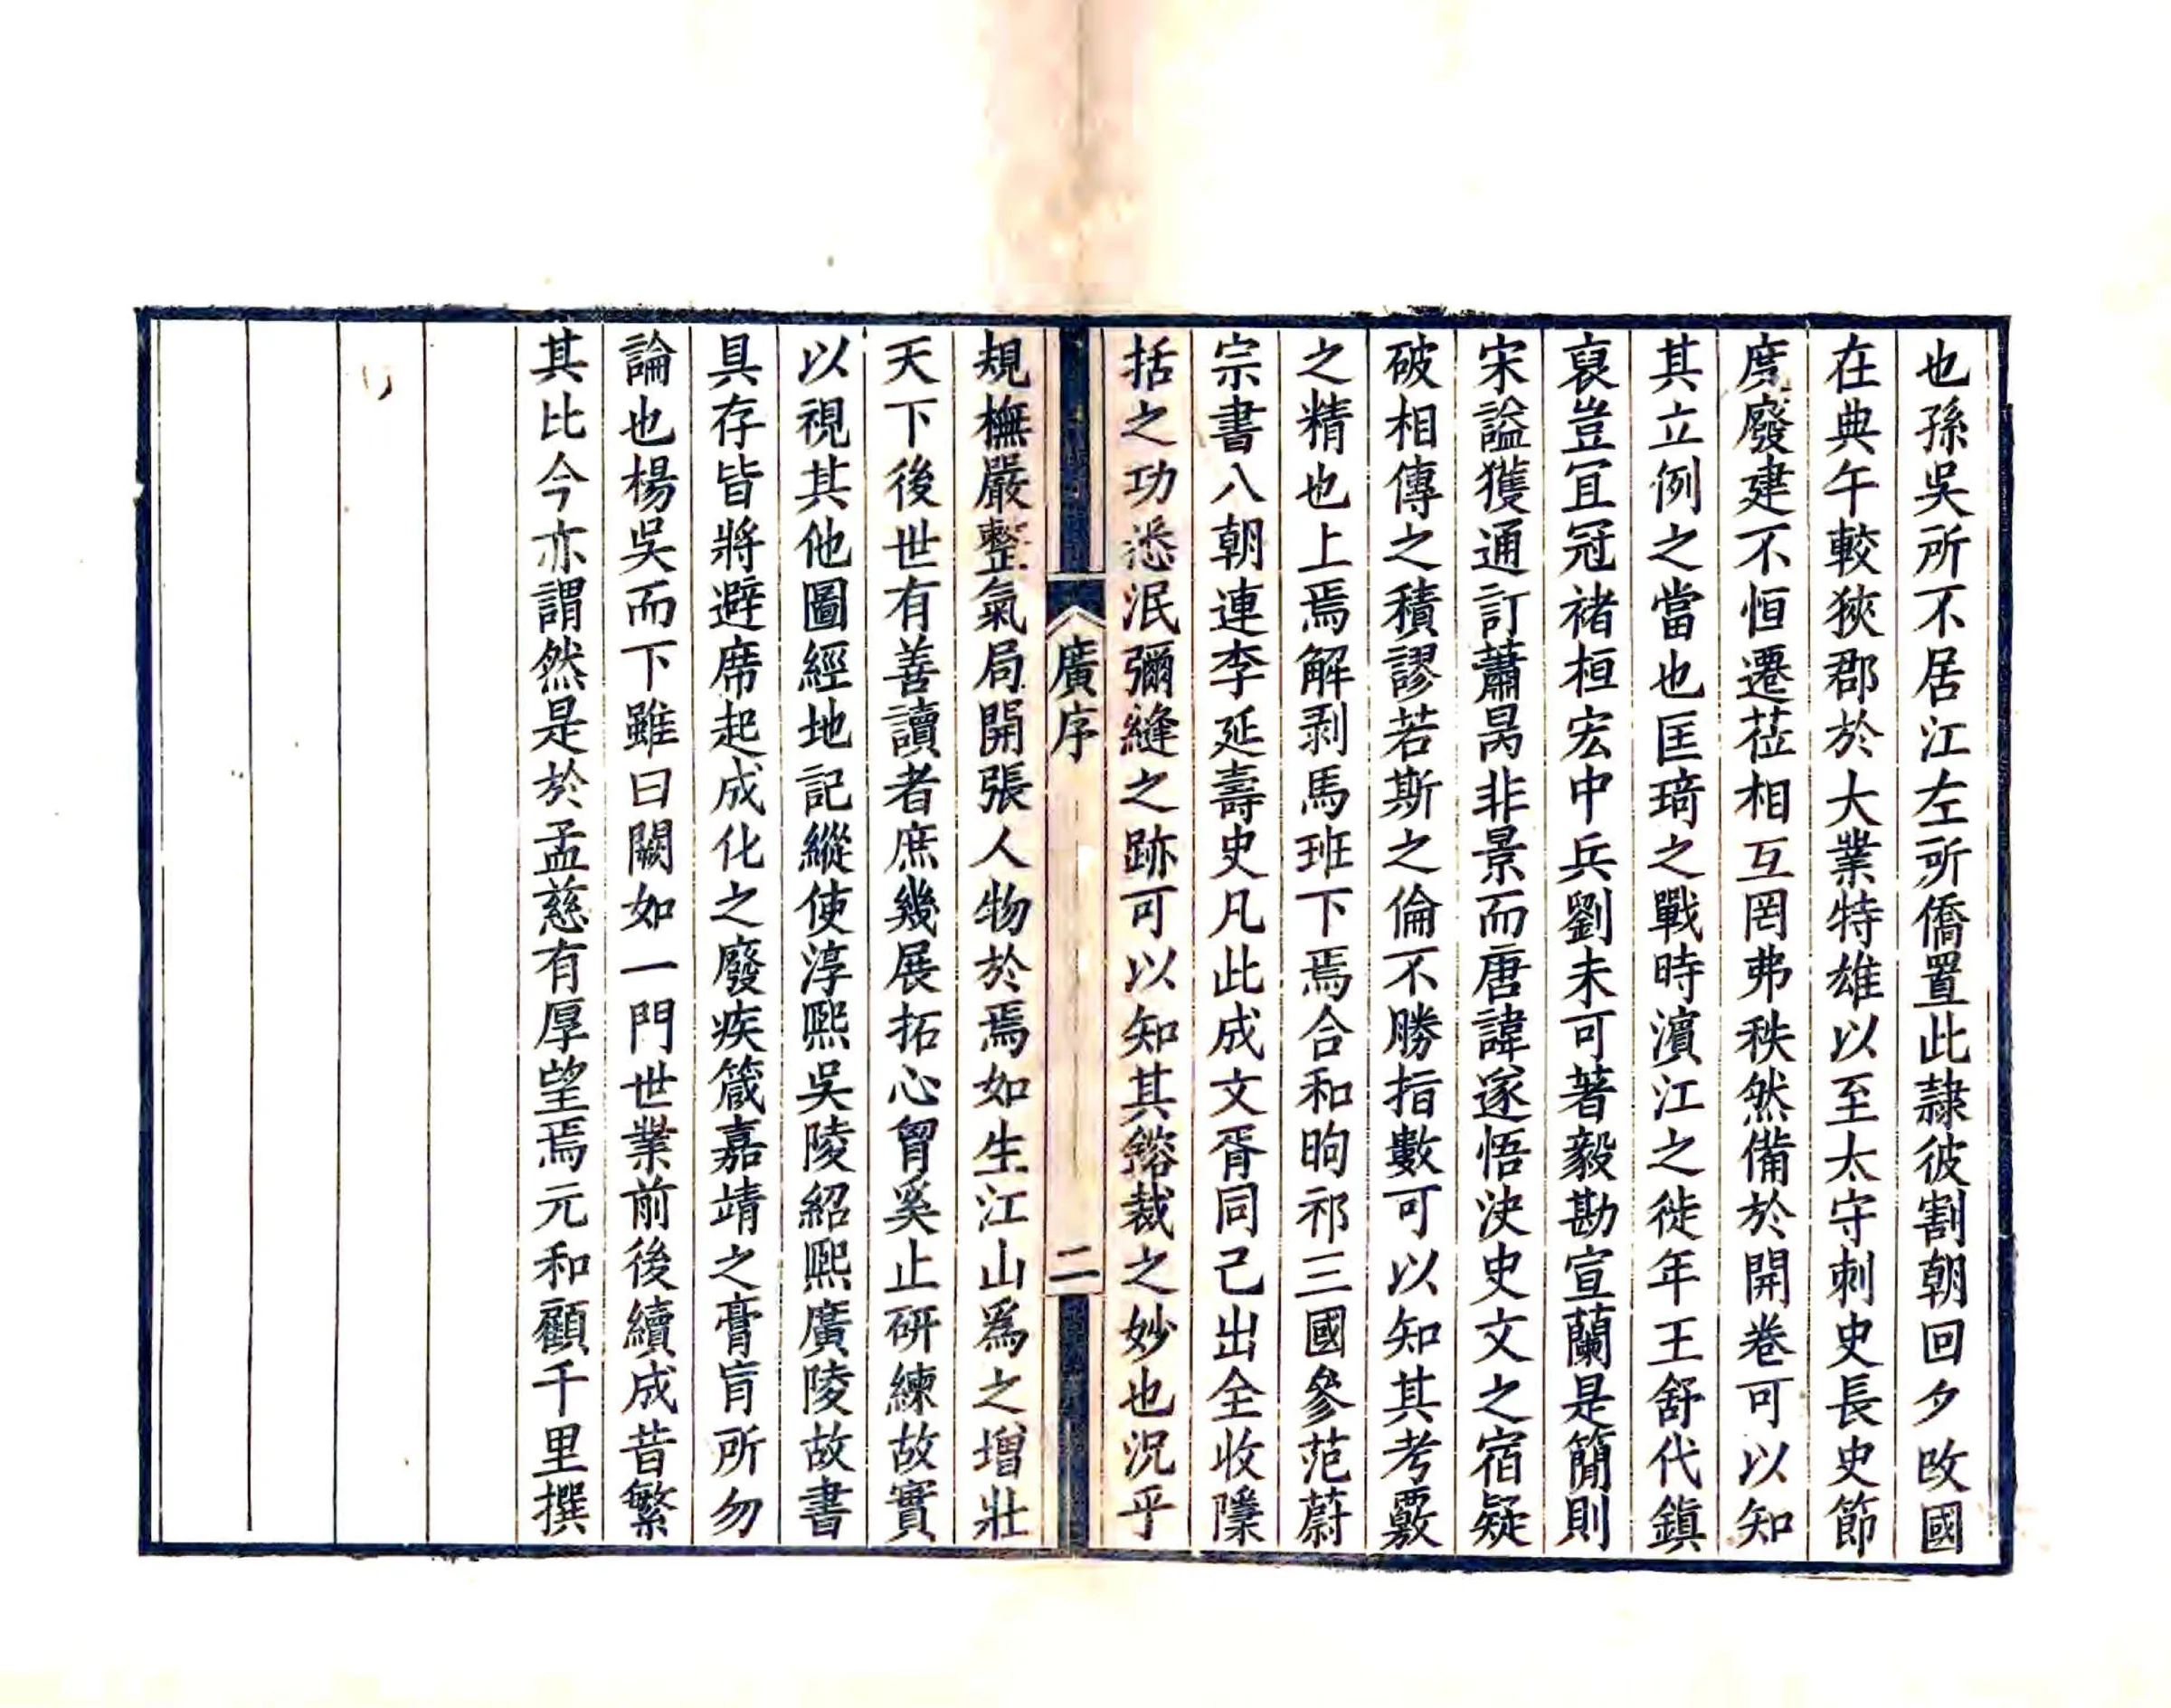 也孫吳所不居江左所僑置此隸彼割朝回夕改國
在典午較狹郡於大業特雄以至太守刺史長史節
度廢建不恒遷莅相互罔弗秩然備於開卷可以知
其立例之當也匡琦之戰時濵江之徙年王舒代鎮
裒豈宜冠褚桓宏中兵劉未可著毅勘宣蘭是簡則
宋謚獲通訂蕭昺非景而唐諱遂悟決史文之宿疑
破相傳之積謬若斯之倫不勝指數可以知其考覈
之精也上焉解剥馬班下焉合和昫祁三國參范蔚
宗書八朝連李延壽史凡此成文胥同己出全收隱
括之功悉泯彌縫之跡可以知其鎔裁之妙也況乎
廣序
二
規橅嚴整氣局開張人物於焉如生江山爲之增壯
天下後世有善讀者庶幾展拓心胷奚止研練故實
以視其他圖經地記縱使淳熙吳陵紹熙廣陵故書
具存皆將避席起成化之廢疾箴嘉靖之膏肓所勿
論也楊吳而下雖曰闕如一門世業前後續成昔繁
其比今亦謂然是於孟慈有厚望焉元和顧千里撰